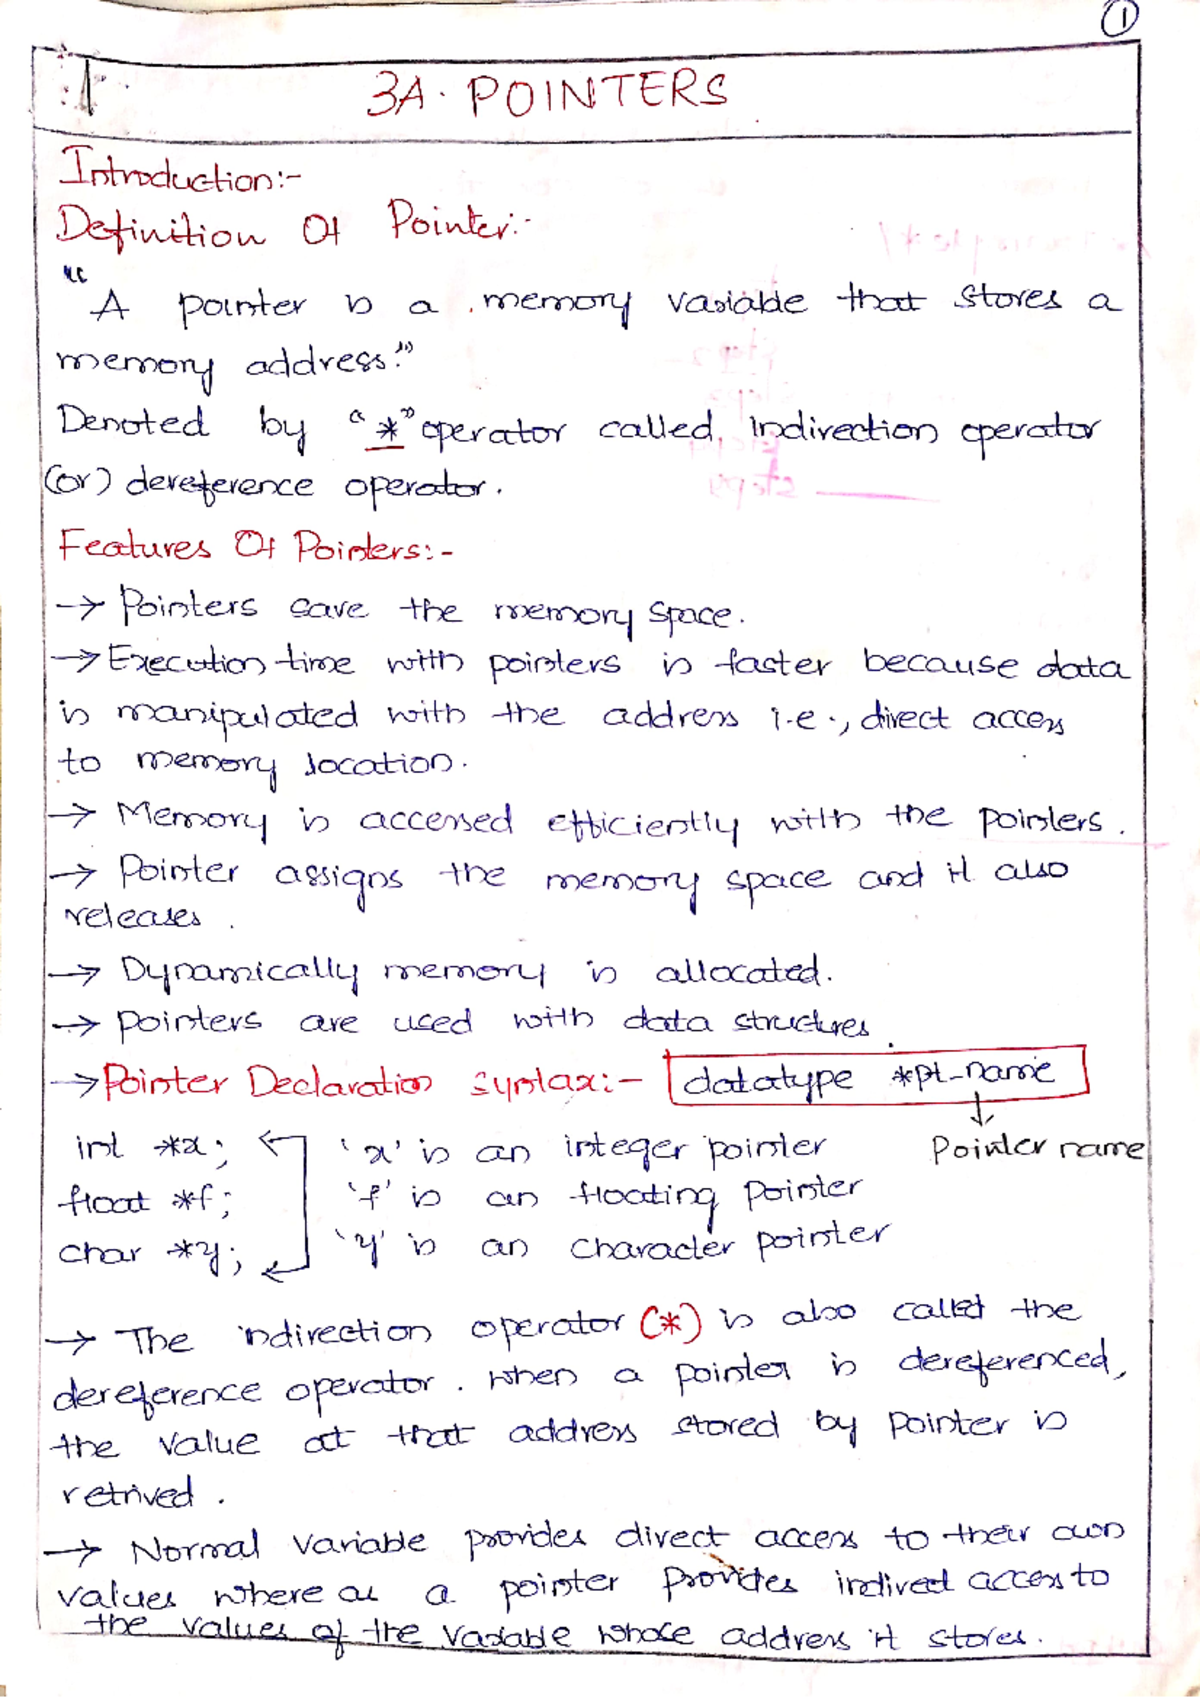 1
3A. POINTERS
Introduction:-
Definition Of Pointer:-
"A pointer is a memory variable that stores a
memory address."
Denoted by "*" operator called, Indirection operator
(or) dereference operator.
Features Of Pointers:-
→ Pointers save the memory space.
→ Execution time with pointers is faster because data
is manipulated with the address i.e., direct access
to memory location.
→ Memory is accessed efficiently with the pointers.
→ Pointer assigns the memory space and it also
releases.
→ Dynamically memory is allocated.
→ pointers are used with data structures.
→ Pointer Declaration Syntax:- datatype *pt-name
int *x; 'x' is an integer pointer Pointer name
float *f; 'f' is an floating pointer
char *y; 'y' is an character pointer
→ The indirection operator (*) is also called the
dereference operator. When a pointer is dereferenced,
the value at that address stored by pointer is
retrived.
→ Normal variable provides direct access to their own
values where as a pointer provides indirect access to
the values of the variable whose address it stores.